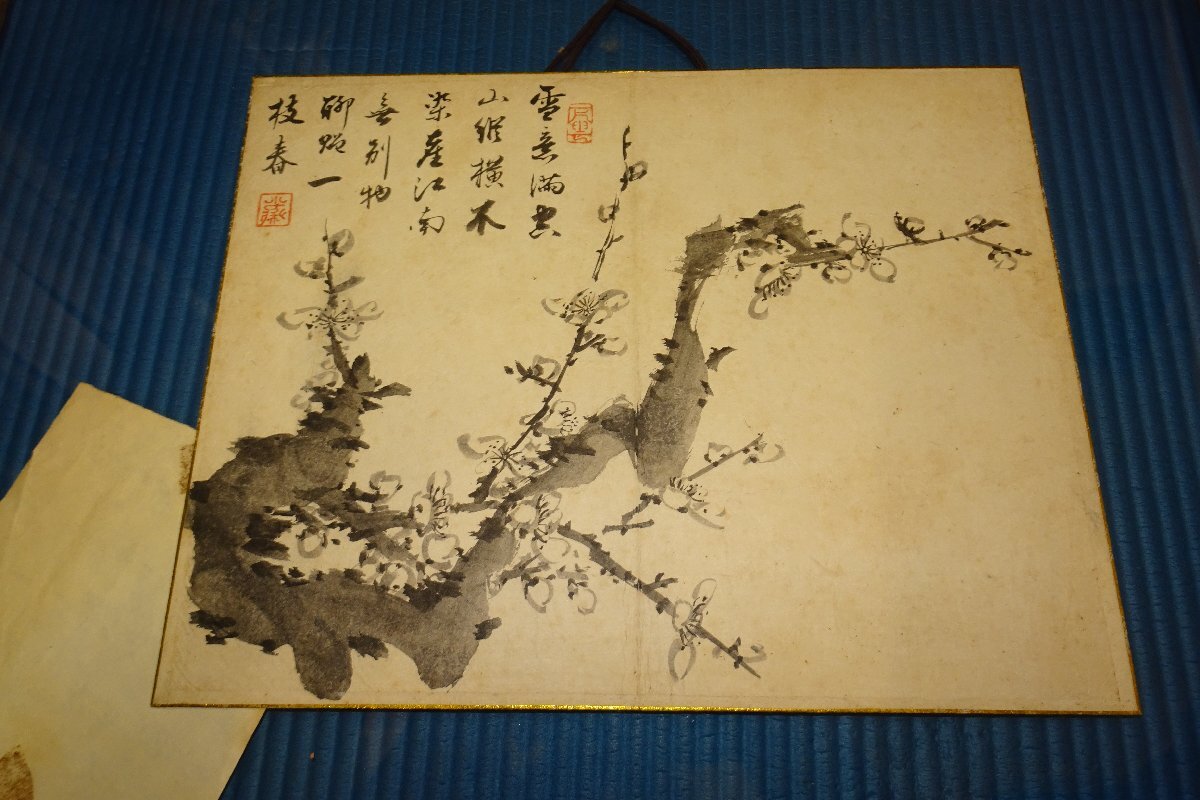 雪意満空
山縦横不
染塵江南
無別物
聊贈一
枝春